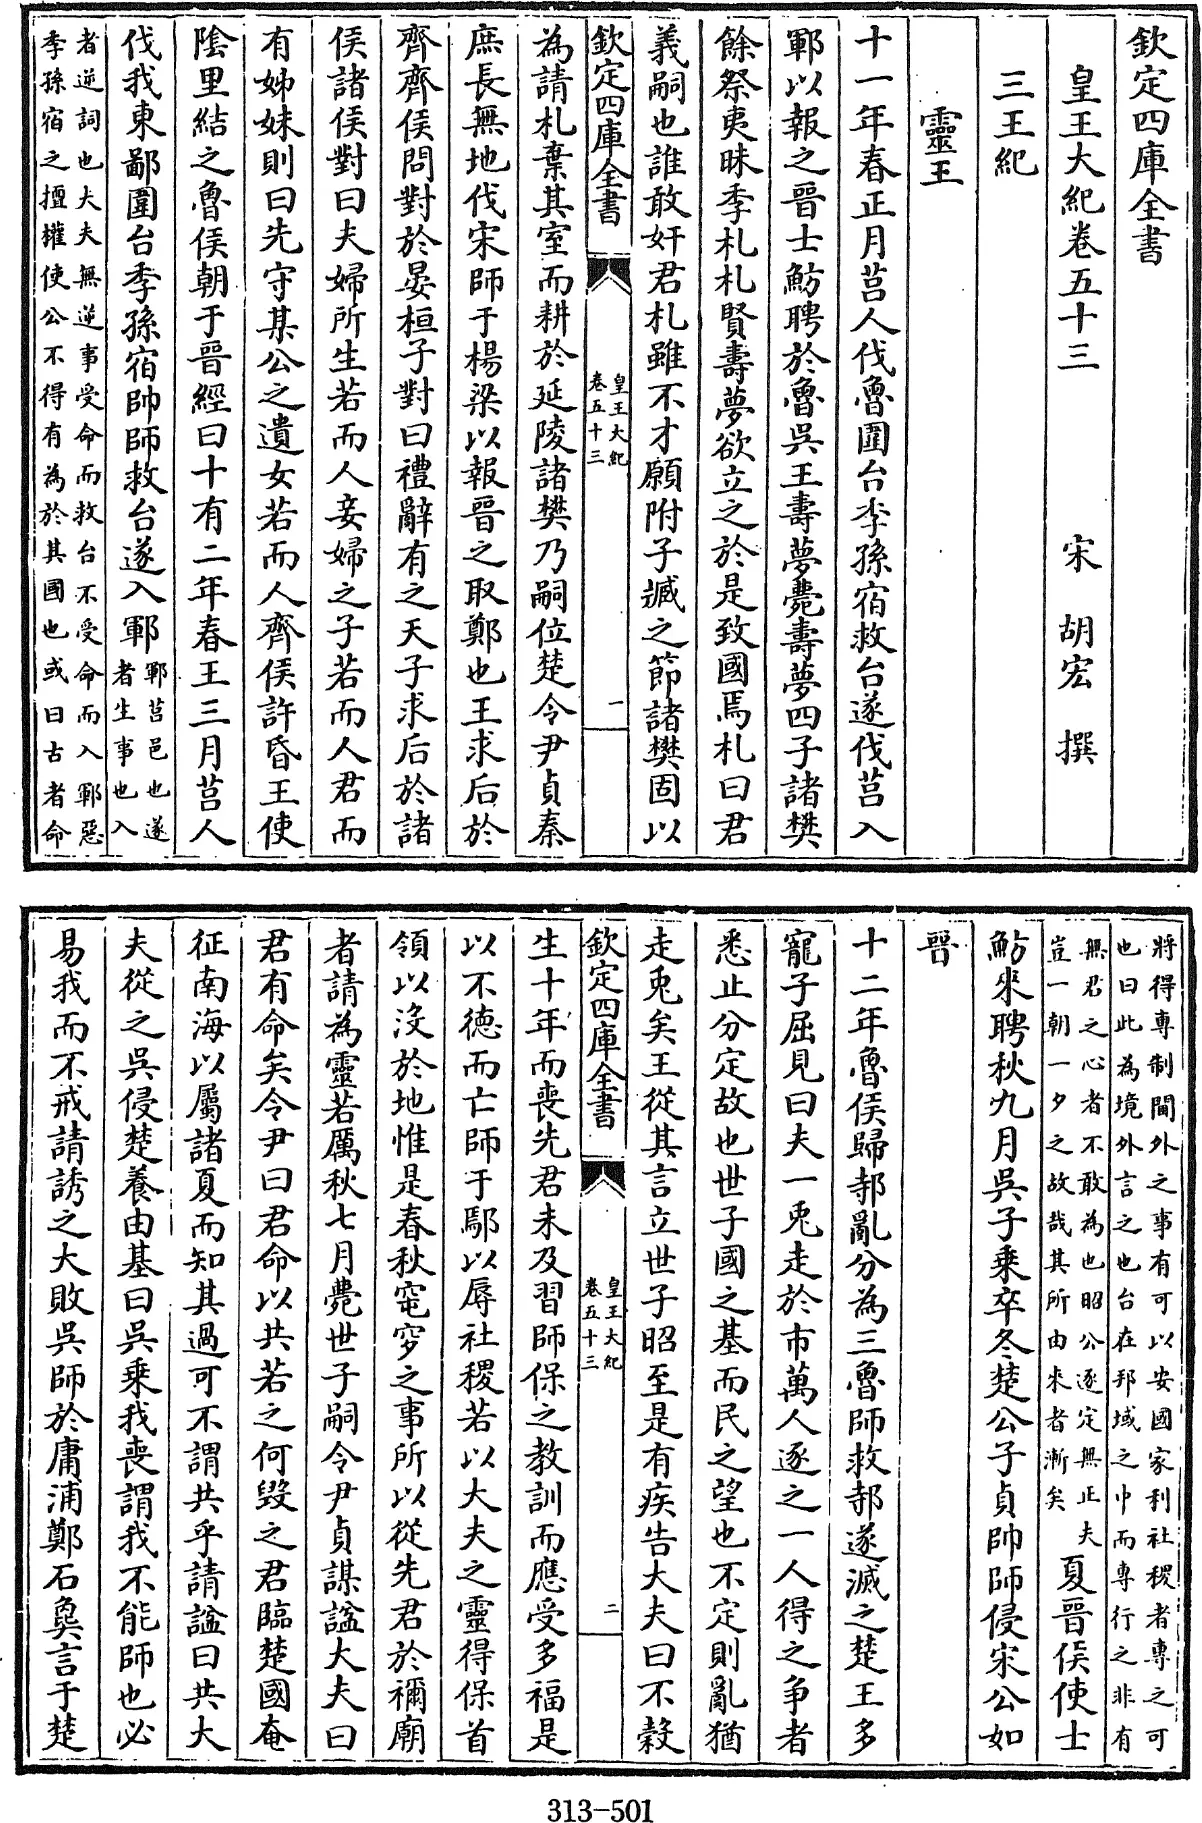 欽定四庫全書
皇王大紀卷五十三
宋 胡宏 撰
三王紀
靈王
十一年春正月莒人伐魯圍台季孫宿救台遂伐莒入
鄆以報之晉士魴聘於魯吳王壽夢薨壽夢四子諸樊
餘祭夷昧季札札賢壽夢欲立之於是致國焉札曰君
義嗣也誰敢奸君札雖不才願附子臧之節諸樊固以
欽定四庫全書
皇王大紀
卷五十三
一
為請札棄其室而耕於延陵諸樊乃嗣位楚令尹貞秦
庶長無地伐宋師于楊梁以報晉之取鄭也王求后於
齊齊侯問對於晏桓子對曰禮辭有之天子求后於諸
侯諸侯對曰夫婦所生若而人妾婦之子若而人君而
有姊妹則曰先守某公之遺女若而人齊侯許昏王使
陰里結之魯侯朝于晉經曰十有二年春王三月莒人
伐我東鄙圍台季孫宿帥師救台遂入鄆
鄆莒邑也遂
者生事也入
者逆詞也夫夫無逆事受命而救台不受命而入鄆惡
季孫宿之擅權使公不得有為於其國也或曰古者命
將得專制閫外之事有可以安國家利社稷者專之可
也曰此為境外言之也台在邦域之中而專行之非有
無君之心者不敢為也昭公逐定無正夫
豈一朝一夕之故哉其所由來者漸矣
夏晉侯使士
魴來聘秋九月吳子乗卒冬楚公子貞帥師侵宋公如
晉
十二年魯侯歸邿亂分為三魯師救邿遂滅之楚王多
寵子屈見曰夫一兎走於市萬人逐之一人得之争者
悉止分定故也世子國之基而民之望也不定則亂猶
走兎矣王從其言立世子昭至是有疾告大夫曰不榖
欽定四庫全書
皇王大紀
卷五十三
二
生十年而喪先君未及習師保之教訓而應受多福是
以不德而亡師于鄢以辱社稷若以大夫之靈得保首
領以沒於地惟是春秋窀穸之事所以從先君於禰廟
者請為靈若厲秋七月薨世子嗣令尹貞謀諡大夫曰
君有命矣令尹曰君命以共若之何毀之君臨楚國奄
征南海以屬諸夏而知其過可不謂共乎請諡曰共大
夫從之吳侵楚養由基曰吳乗我喪謂我不能師也必
易我而不戒請誘之大敗吳師於庸浦鄭石㚟言于楚
313-501